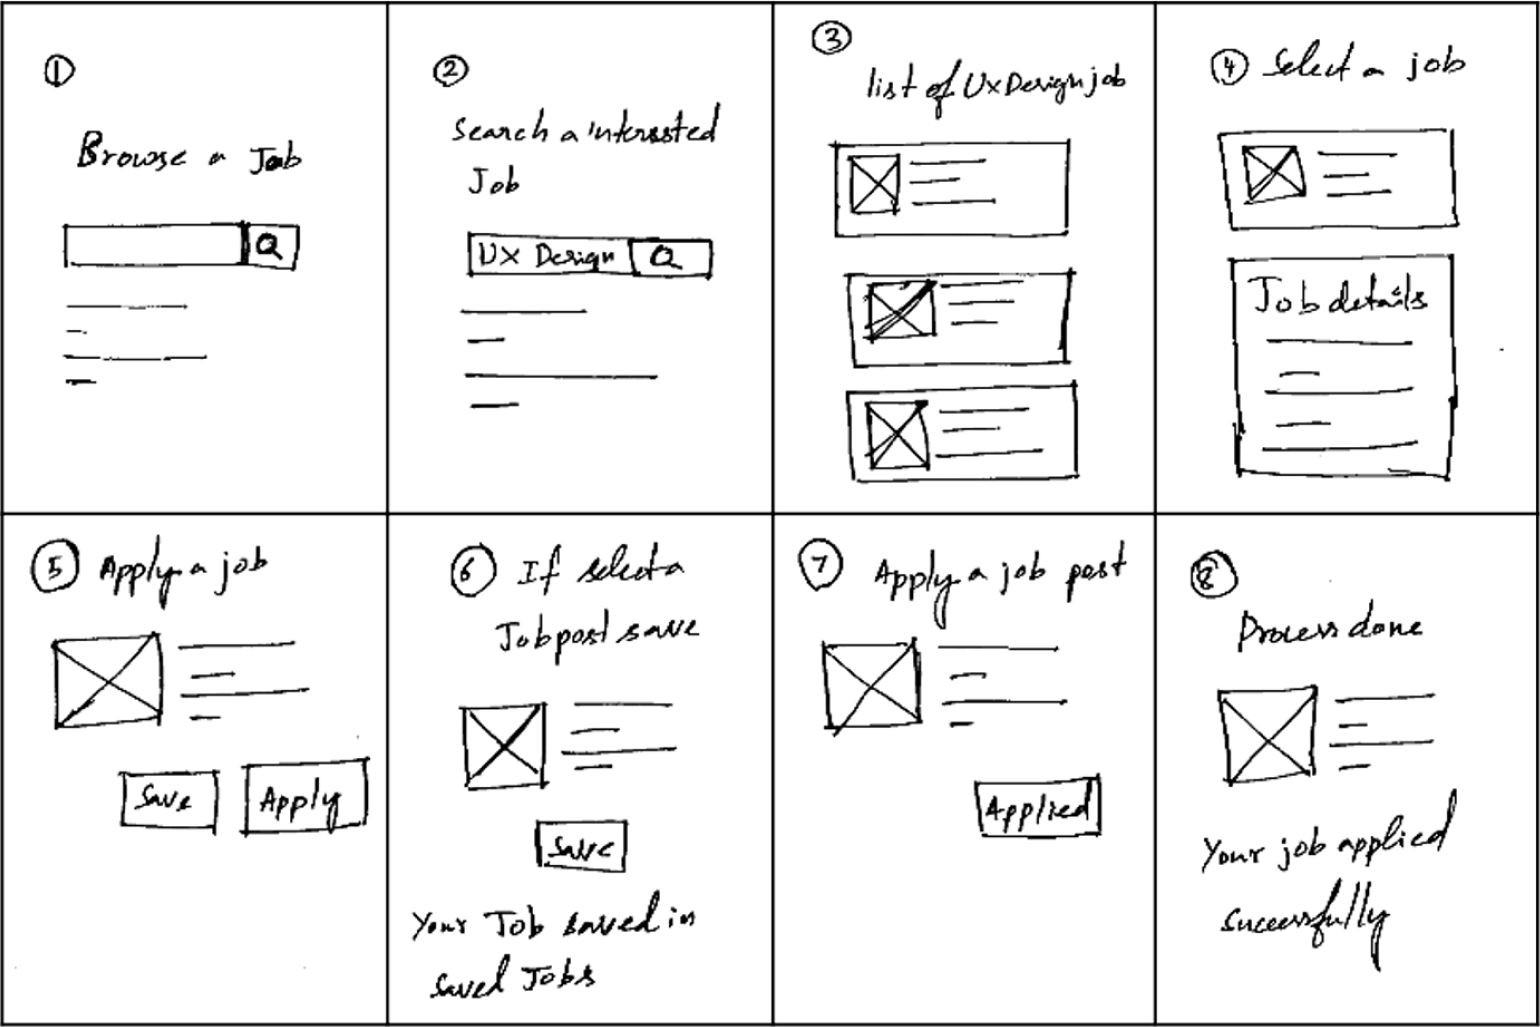 1
Browse a Job
2
Search a interested
Job
UX Design
3
list of UX Design job
4 Select a job
Job details
5 Apply a job
Save Apply
6 If select a
Job post save
Save
Your Job saved in
saved Jobs
7 Apply a job post
Applied
8
Process done
Your job applied
successfully